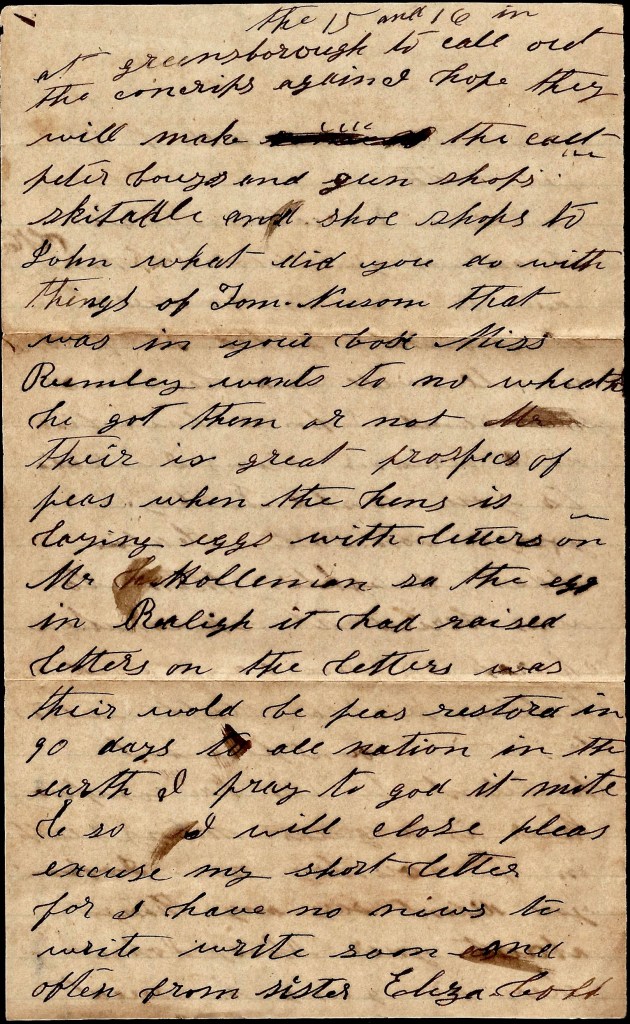 the 15 and 16 in
at greensborough to call out
the concrips again I hope they
will make the call
peter bouys and gun shops
skitable and shoe shops to
John what did you do with
things of Tom Nusom that
was in your box Miss
Rumley wants to no wheath
he got them or not Mr
their is great prospecs of
peas when the hens is
laying eggs with letters on
Mr Holleman sa the egg
in Raligh it had raised
letters on the letters was
their wold be peas restord in
90 days to all nation in the
earth I pray to god it mite
be so I will close pleas
excuse my short letter
for I have no niws to
write write soon and
often from sister Eliza